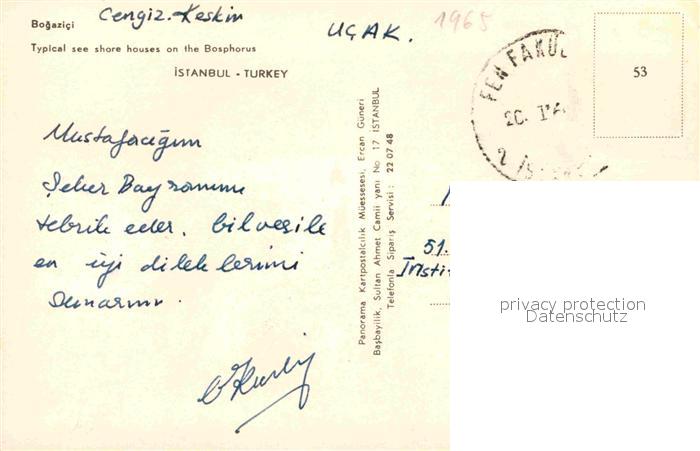 Boğaziçi
Cengiz. Keskin
UÇAK.
1965
Typical see shore houses on the Bosphorus
İSTANBUL - TURKEY
FEN FAKÜL
2 İS
53
Mustafacığım
Şeker Bayramını
tebrik eder, bilvesile
en iyi dileklerimi
sunarım.
Panorama Kartpostalcılık Müessesesi, Ercan Güneri
Başbayilik, Sultan Ahmet Camii yanı No 17 İSTANBUL
Telefonla Sipariş Servisi : 22 07 48
51.
Insti
privacy protection
Datenschutz